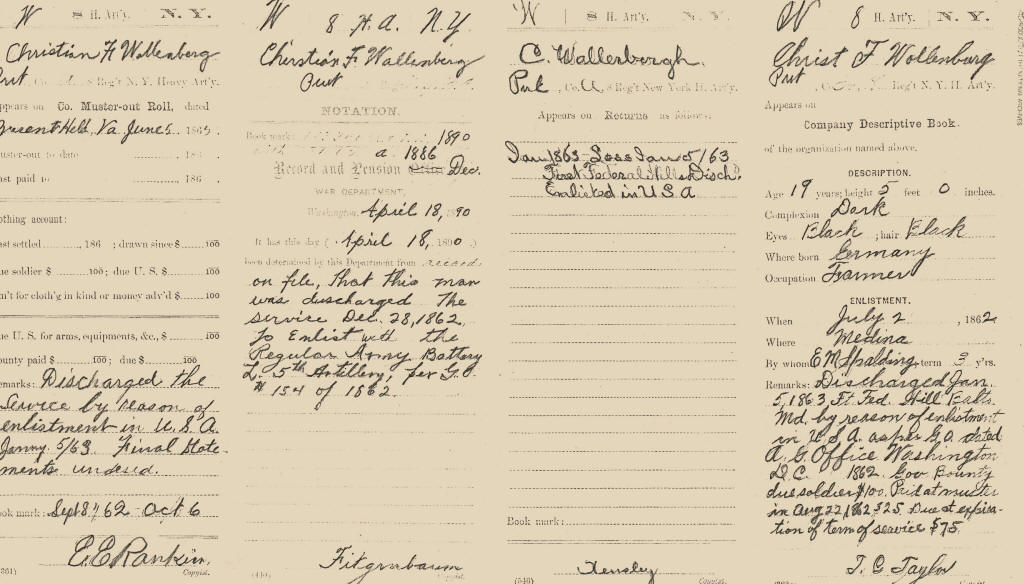 W 8 H. Art'y. N. Y.
Christian F Wallenberg
Pvt, Co. , 8 Reg't N. Y. Heavy Art'y.
Appears on Co. Muster-out Roll, dated
Present Held, Va June 5, 1865.
Muster-out to date , 186 .
Last paid to , 186 .
Clothing account:
Last settled , 186 ; drawn since $ 100
Due soldier $ 100; due U. S. $ 100
Am't for cloth'g in kind or money adv'd $ 100
Due U. S. for arms, equipments, &c., $ 100
Bounty paid $ 100; due $ 100
Remarks: Discharged the
Service by reason of
enlistment in U.S.A.
Janny. 5/63. Final State-
ments undend.
Book mark: Sept 8 62 Oct 6
E.E. Rankin.
(361) Copyist.
W 8 H.A. N.Y.
Christian F. Wallenberg
Pvt
NOTATION.
Book mark: 1890
a. 1886
Record and Pension Office Dec.
WAR DEPARTMENT,
Washington, April 18, 1890
It has this day ( April 18, 1890 )
been determined by this Department from records
on file, that this man
was discharged the
service Dec. 28, 1862,
To Enlist with the
Regular Army Battery
L. 5th Artillery, per G.O.
# 154 of 1862.
Fitzgnbaum
Copyist.
W 8 H. Art'y. N. Y.
C. Wallerbergh.
Pvt, Co. , 8 Reg't New York H. Art'y.
Appears on Returns as follows:
Jan 1863 Loss Jan 5/63
First Federal Hills Disch.
Enlisted in U S A
Book mark:
Hensley
(546) Copyist.
W 8 H. Art'y. N. Y.
Christ F Wollenburg
Pvt
, Co. , Reg't N. Y. H. Art'y.
Appears on
Company Descriptive Book.
of the organization named above.
DESCRIPTION.
Age 19 years; height 5 feet 0 inches.
Complexion Dark
Eyes Black ; hair Black
Where born Germany
Occupation Farmer
ENLISTMENT.
When July 2 , 1862
Where Medina
By whom E M Spalding, term 3 y'rs.
Remarks: Discharged Jan.
5, 1863 Ft. Fed. Hill Balts.
Md. by reason of enlistment
in U S A. as per G.O. dated
A. G. Office Washington
D.C. 1862. Gov Bounty
due soldier $100. Paid at muster
in Aug 22, 1862 $25 Due at expira-
tion of term of service $75.
T. G Taylor
Copyist.